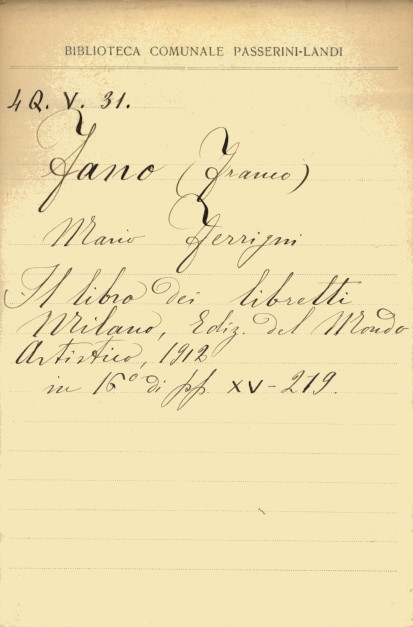 BIBLIOTECA COMUNALE PASSERINI-LANDI
4Q. V. 31.
Fano (Franco)
Mario Ferrigni
Il libro dei libretti
Milano, Ediz. del Mondo
Artistico, 1912
in 16° di pp. XV-219.